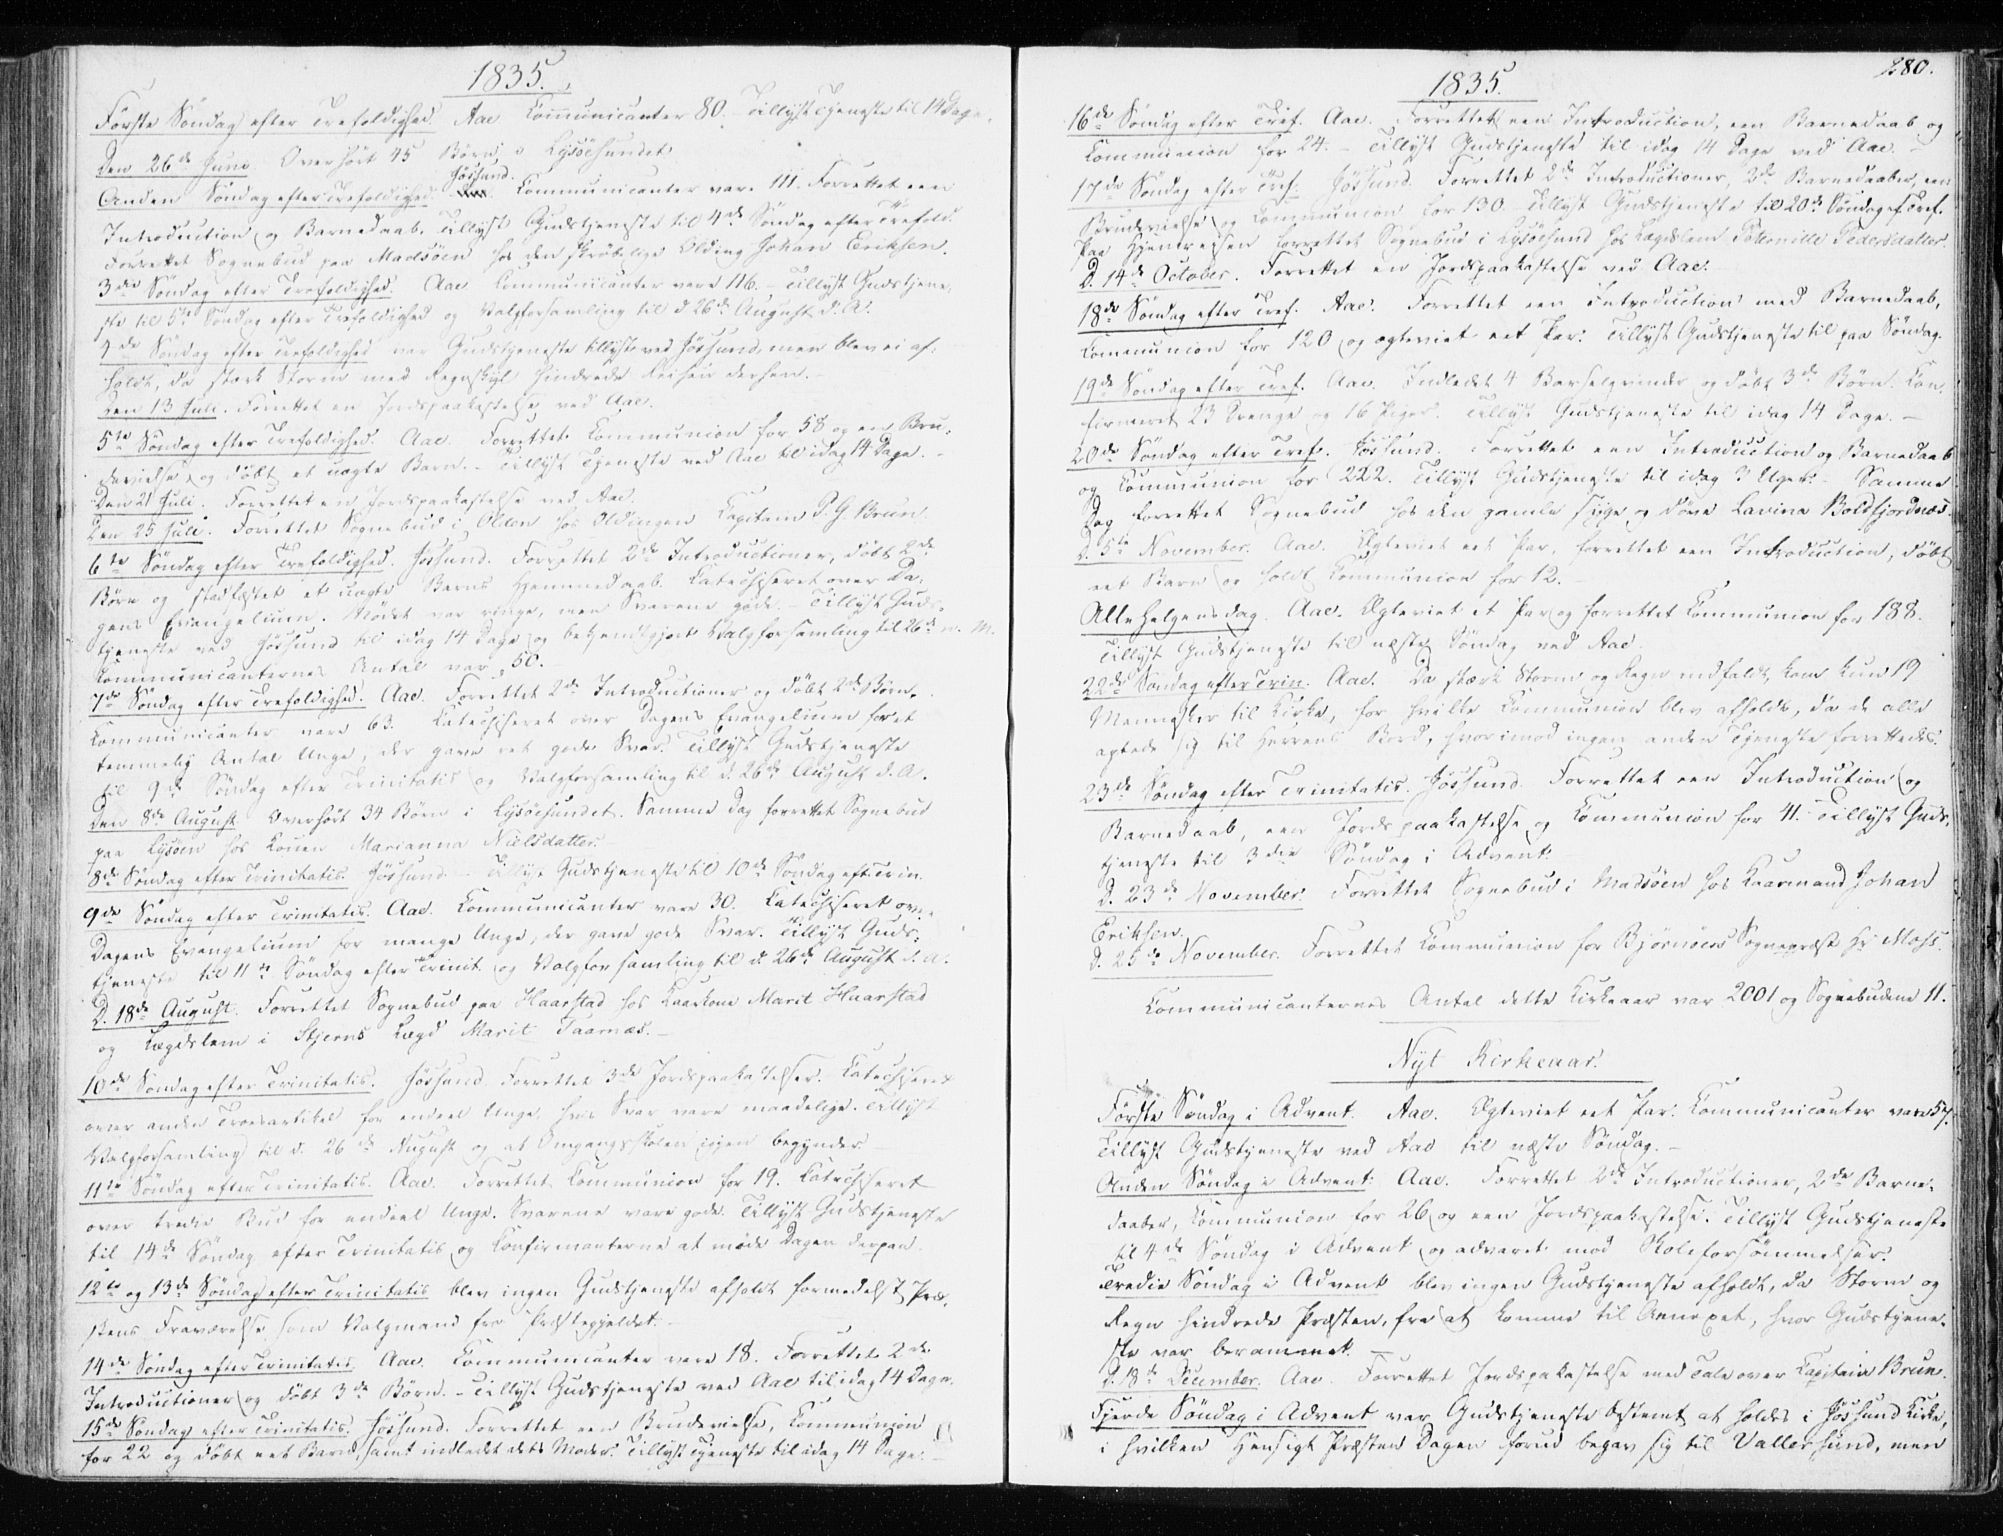 1835.
Første Søndag efter Trefoldighed. Aae Communicanter 80. Tillyst Tjeneste til 14 Dage.
Den 26de Juni Overhørt 45 Børn i Lysöesundet
Jössund.
Anden Søndag efter Trefoldighed. Communicanter vare 111. Forrettet een
Introduction og Barnedaab. Tillyst Gudstjeneste til 4de Søndag efter Trefold.
Forrettet Sognebud paa Madsöen hos den skrøbelige Olding Johan Eriksen.
3die Søndag efter Trefoldighed. Aae Communicanter vare 116. – Tillyst Gudstjene-
ste til 5te Søndag efter Trefoldighed og Valgforsamling til d 26de August d. A.
4de Søndag efter Trefoldighed var Gudstjeneste tillyst ved Jössund, men blev ei af-
holdt, da stærk Storm med Regnskyl hindrede Reisen derhen.
Den 13 Juli. Forrettet en Jordspaakastelse ved Aae.
5te Søndag efter Trefoldighed. Aae. Forrettet Communion for 58 og en Bru-
devielse og døbt et uægte Barn. – Tillyst Tjeneste ved Aae til idag 14 Dage. –
Den 21 Juli. Forrettet en Jordspaakastelse ved Aae.
Den 25 Juli. Forrettet Sognebud i Olden hos Oldingen Capitain P. G Brun
6te Søndag efter Trefoldighed. Jössund. Forrettet 2de Introductioner, døbt 2de
Børn og stadfæstet et uægte Barns Hjemmedaab. Catechiseret over Da-
gens Evangelium. Mødet var ringe, men Svarene gode. – Tillyst Guds-
tjeneste ved Jössund til idag 14 Dage og bekjendtgjort Valgforsamling til 26de n. M.
Communicanternes Antal var 50. –
7de Søndag efter Trefoldighed. Aae. Forrettet 2de Introductioner og døbt 2de Børn.
Communicanter vare 63. Catechiseret over Dagens Evangelium for et
temmelig Antal Unge, der gave ret gode Svar. Tillyst Gudstjeneste
til 9de Søndag efter Trinitatis og Valgforsamling til d. 26de August d. A.
Den 8de August Overhørt 34 Børn i Lysöesundet. Samme Dag forrettet Sognebud
paa Lysöen hos Konen Marianna Nielsdatter.
8de Søndag efter Trinitatis. Jössund – Tillyst Gudstjeneste til 10de Søndag eft. Trin.
9de Søndag efter Trinitatis. Aae. Communicanter vare 30. Catechiseret over
Dagens Evangelium for mange Unge, der gave gode Svar. Tillyst Guds-
tjeneste til 11te Søndag efter Trinit. og Valgforsamling til d. 26de August d. A.
D. 18de August. Forrettet Sognebud paa Haarstad hos Kaarkone Marit Haarstad
og Lægdslem i Stjerns Lægd Marit Taarnæs. –
10de Søndag efter Trinitatis. Jössund Forrettet 3de Jordspaakastelser. Catechiseret
over anden Troesartikel for endeel Unge, hvis Svar vare maadelige. Tillyst
Valgforsamling til d. 26de August og at Omgangsskolen igjen begynder. –
11te Søndag efter Trinitatis. Aae. Forrettet Communion for 19. Catechiseret
over tredie Bud for endeel Unge. Svarene vare gode. Tillyst Gudstjeneste
til 14de Søndag efter Trinitatis og Confirmanterne at møde Dagen derpaa.
12te og 13de Søndag efter Trinitatis blev ingen Gudstjeneste afholdt formedelst Præ-
stens Fraværelse som Valgmand fra Præstegjeldet. –
14de Søndag efter Trinitatis. Aae. Communicanter vare 18. Forrettet 2de
Introductioner og døbt 3de Børn. – Tillyst Gudstjeneste ved Aae til idag 14 Dage.
15de Søndag efter Trinitatis. Jössund. Forrettet een Brudevielse, Communion
for 22 og døbt eet Barn, samt indledet dets Moder. Tillyst Tjeneste til idag 14 Dage. –
280.
1835.
16de Søndag efter Tref. Aae. Forrettet een Introduction, een Barnedaab og
Communion for 24. – Tillyst Gudstjeneste til idag 14 Dage ved Aae. –
17de Søndag efter Tref. Jössund. Forrettet 2de Introductioner, 2de Barnedaaber, een
Brudevielse og Communion for 130. Tillyst Gudstjeneste til 20de Søndag ef. Tref.
Paa Hjemreisen forrettet Sognebud i Lysöesund hos Lægdslem Pedersdatter.
D. 14de October. Forrettet en Jordspaakastelse ved Aae.
18de Søndag efter Tref. Aae. Forrettet een Introduction med Barnedaab,
Communion for 120 og ægteviet eet Par. Tillyst Gudstjeneste til paa Søndag.
19de Søndag efter Tref. Aae. Indledet 4 Barselqvinder og døbt 3de Børn. Con-
firmeret 23 Drenge og 16 Piger. Tillyst Gudstjeneste til idag 14 Dage. –
20de Søndag efter Tref. Jössund. Forrettet een Introduction og Barnedaab
og Communion for 222. Tillyst Gudstjeneste til idag 3 Uger. – Samme
Dag forrettet Sognebud hos den gamle syge og døve Lavina Boldfjordnæs
D. 5te November. Aae. Ægteviet eet Par, forrettet een Introduction, døbt
eet Barn og holdt Communion for 12. –
Alle helgens dag. Aae. Ægteviet et Par og forrettet Communion for 188.
Tillyst Gudstjeneste til næste Søndag ved Aae.
22de Søndag efter Trin. Aae. Da stærk Storm og Regn indfaldt, kom kun 19
Mennesker til Kirke, for hvilke Communion blev afholdt, da de alle
agtede sig til Herrens Bord, hvorimod ingen anden Tjeneste forrettedes.
23de Søndag efter Trinitatis. Jössund. Forrettet een Introduction og
Barnedaab, een Jordspaakastelse og Communion for 41. – Tillyst Guds-
tjeneste til 3die Søndag i Advent.
D. 23de November. Forrettet Sognebud i Madsöen hos Kaarmand Johan
Eriksen.
D. 25de November. Forrettet Communion for Bjørnöers Sognepræst Hr Mohs.
Communicanternes Antal dette Kirkeaar var 2001 og Sognebudene 11.
Nyt Kirkeaar.
Første Søndag i Advent. Aae. Ægteviet eet Par. Communicanter vare 57.
Tillyst Gudstjeneste ved Aae til næste Søndag. –
Anden Søndag i Advent. Aae. Forrettet 2de Introductioner, 2de Barne-
daaber, Communion for 26 og een Jordspaakastelse. Tillyst Gudstjeneste
til 4de Søndag i Advent og advaret mod Skoleforsømmelser.
Tredie Søndag i Advent blev ingen Gudstjeneste afholdt, da Storm og
Regn hindrede Præsten, fra at komme til Annexet, hvor Gudstjene-
ste var berammet. –
D. 18de December. Aae. Forrettet Jordspaakastelse med Tale over Capitain Brun.
Fjerde Søndag i Advent var Gudstjeneste bestemt at holdes i Jössund Kirke,
i hvilken Hensigt Præsten Dagen forud begav sig til Vallersund, men